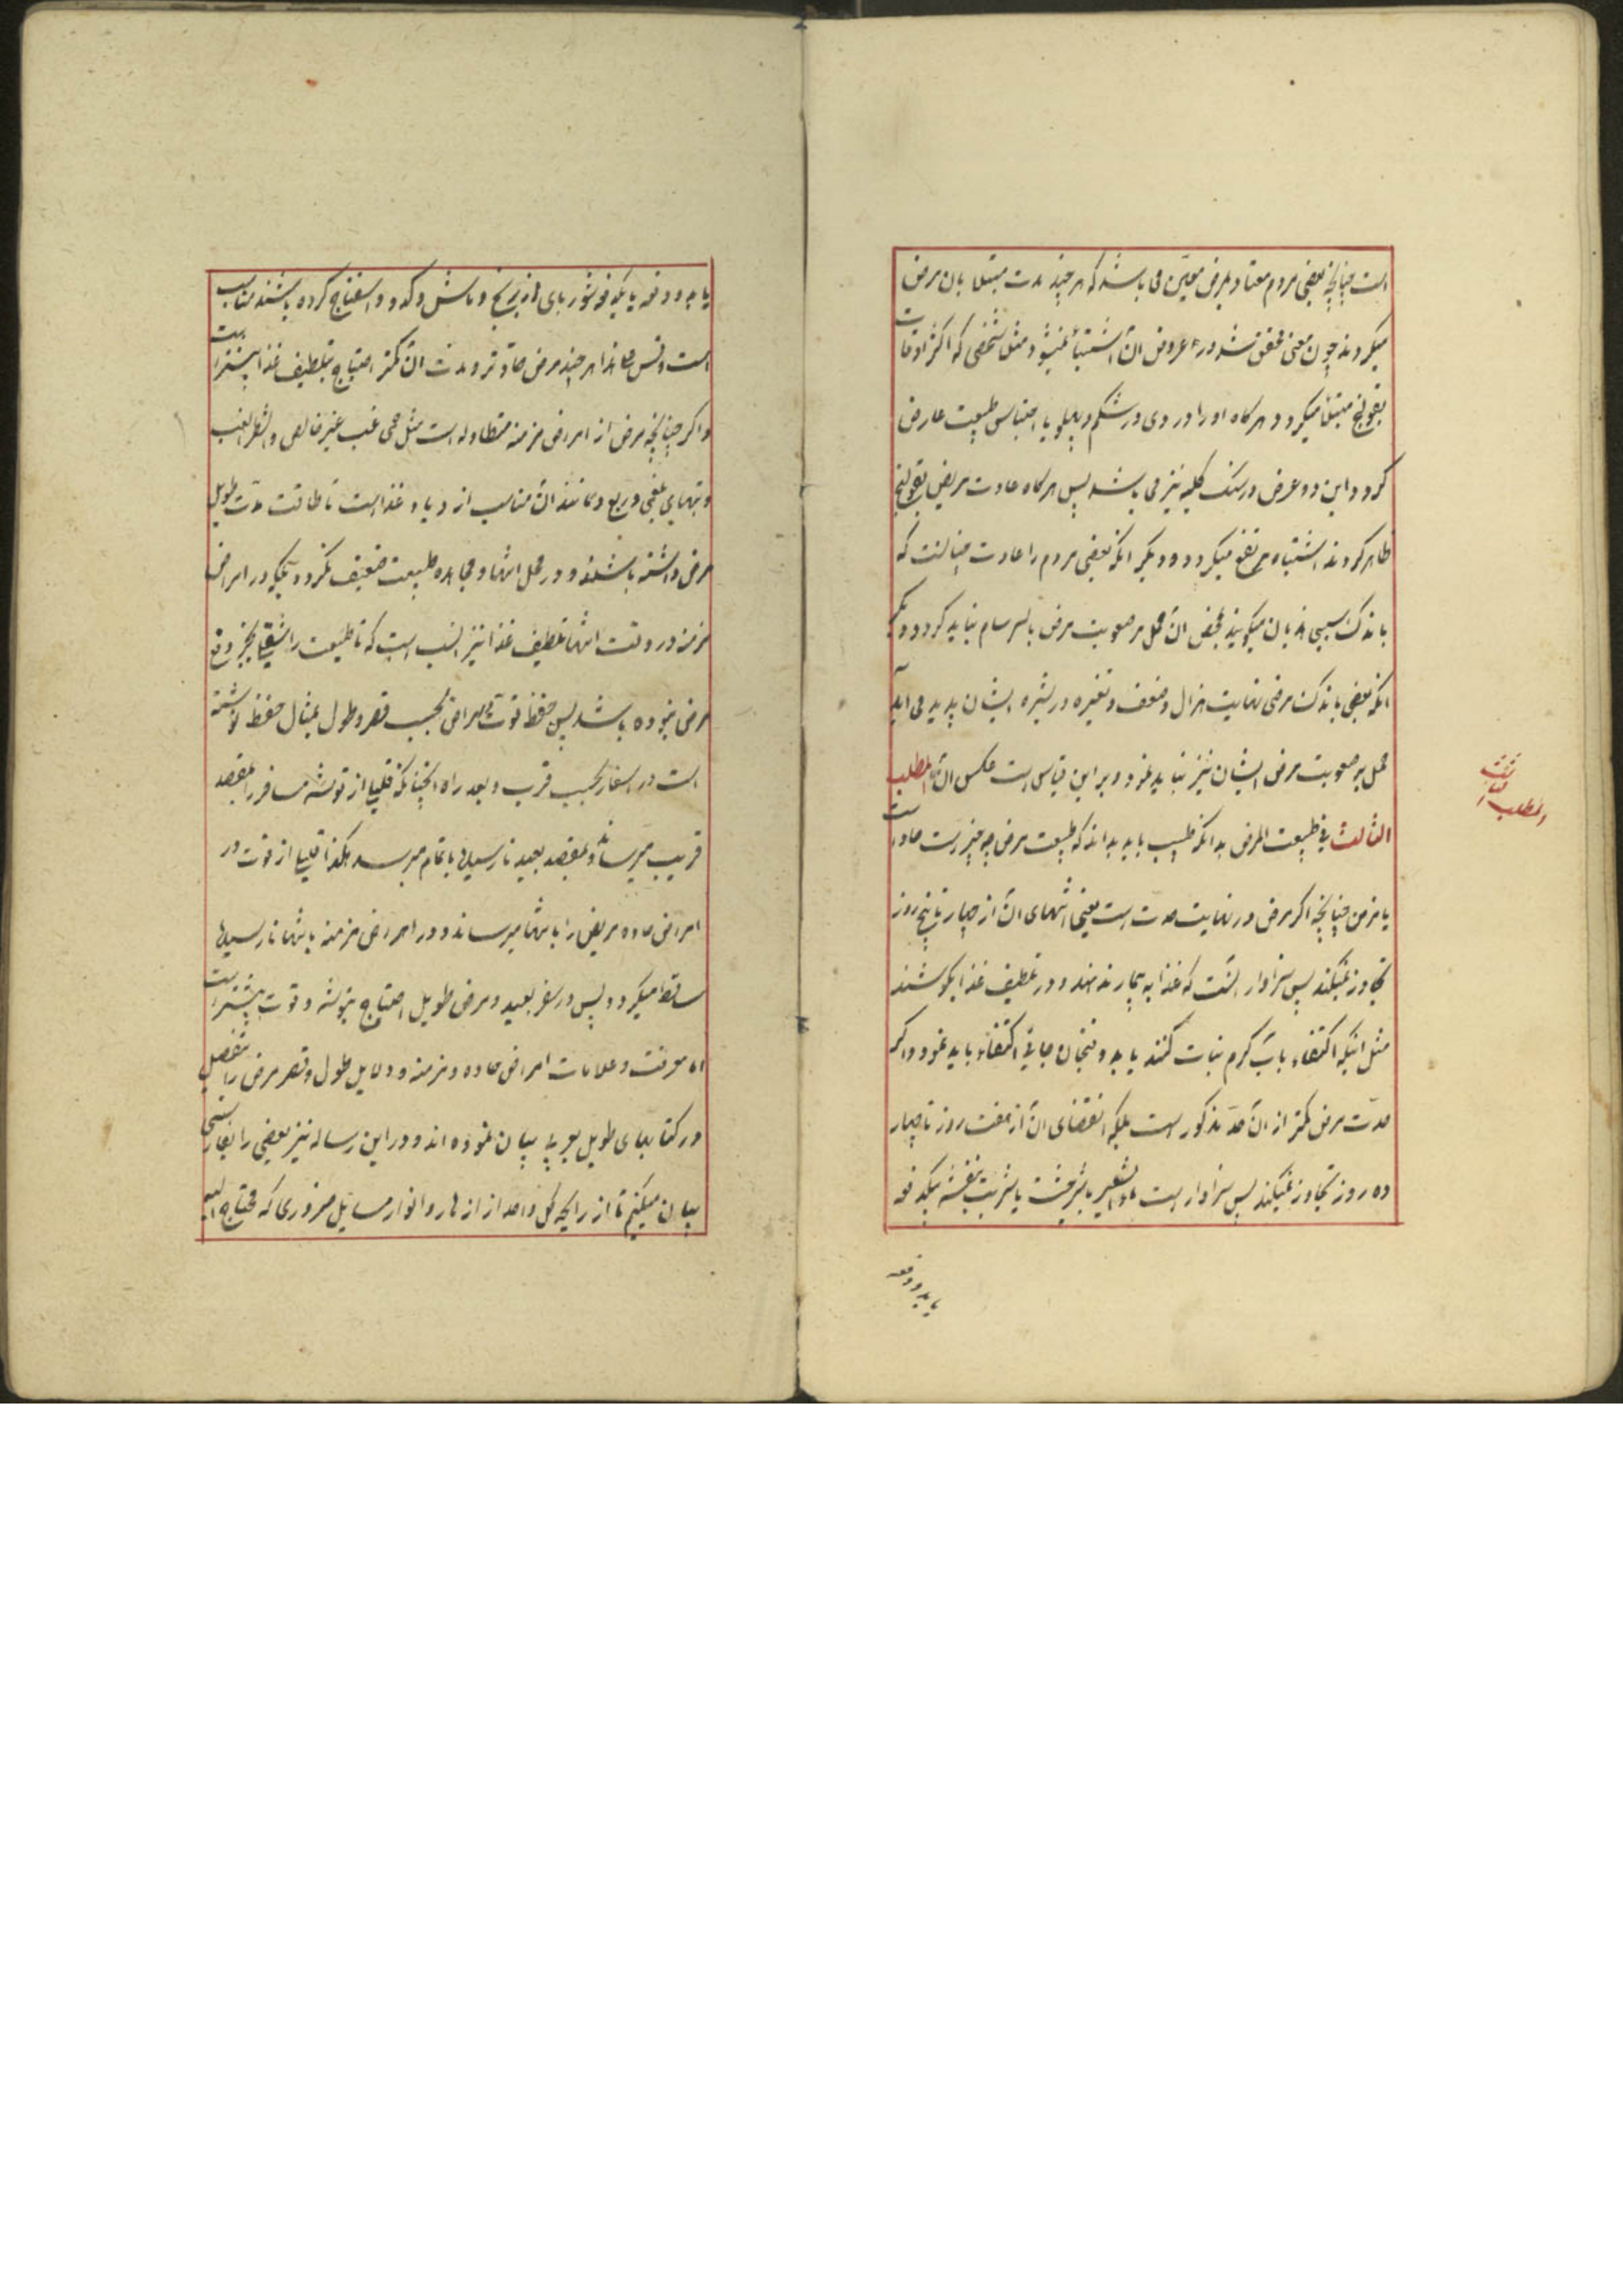 است چنانچه بعضی مردم معتاد بمرض معین می باشند که هر چند مدت مبتلا بان مرض
میکردند چون معنی محقق شد در عروض آن اشتباه نمیشود مثل شخصی که اکثر اوقات
بقولنج مبتلا میکردد هرکاه او را دردی در شکم و پهلو یا احتباس طبیعت عارض
کردد این دو عرض در سنک کلیه نیز می باشد پس هرکاه عادت مریض بقولنج
ظاهر کردند اشتباه مرتفع میکردد و دیکر انکه بعضی مردم را عادت چنانست که
باندک سببی هذیان میکویند بمحض آن حمل بر صعوبت مرض یا سرسام نباید کرد و دیکر
انکه بعضی باندک مرضی نهایت هزال و ضعف و تغیره در بشره ایشان پدید می آید
حمل بر صعوبت مرض ایشان نیز نباید نمود و بر این قیاس است عکس آن المطلب
الثالث فی طبیعت المرض بدانکه طبیب باید بداند که طبیعت مرض چه چیز است حاد است
یا مزمن چنانچه اکر مرض در نهایت حدت است یعنی انتهای آن از چهار تا پنج روز
تجاوز نمیکند پس سزاوار انست که غذا به بیمار ندهند و در تلطیف غذا بکوشند
مثل اینکه اکتفاء بآب کرم نبات کنند یا به دو فنجان چایی اکتفاء باید نمود و اکر
حدت مرض کمتر از آن حد مذکور است بلکه انقضای آن از هفت روز تا چهار
ده روز تجاوز نمیکند پس سزاوار است ماء الشعیر با شیرخشت یا شربت بنفشه یکدفعه
یا بدو دفعه
المطلب الثالث
یا به دو دفعه یا یکدفعه شوربای که از برنج و ماش و کدو و اسفناج کرده باشند مناسب
است و قس علی هذا هر چند مرض حادتر و مدت آن کمتر احتیاج بتلطیف غذا بیشتر است
و اکر چنانچه مرض از امراض مزمنه متطاوله است مثل حمی غب غیر خالص و شطر الغب
و تبهای بلغمی و ربع و مانند آن مناسب ازدیاد غذا است تا طاقت مدت طویل
مرض داشته باشند و در محل انتها و مجاهده طبیعت ضعیف نکردد بلکه در امراض
مزمنه در وقت انتها تلطیف غذا نیز انسب است که تا طبیعت را شغلی بجز دفع
مرض نبوده باشد پس حفظ قوت در امراض بحسب قصر و طول بمثال حفظ توشه
است در اسفار بحسب قرب و بعد راه انچنانکه قلیلی از توشه مسافر را بمقصد
قریب میرساند و بمقصد بعید نارسیده باتمام میرسد هکذا قلیلی از قوت در
امراض حاده مریض را بانتها میرساند و در امراض مزمنه بانتها نارسیده
ساقط میکردد پس در سفر بعید و مرض طویل احتیاج بتوشه و قوت بیشتر است
اما معرفت و علامات امراض حاده و مزمنه و دلایل طول و قصر مرض را مفصل
در کتابهای طویل عربی بیان نموده اند و در این رساله نیز بعضی را بفارسی
بیان میکنیم تا از رایحه کل واحد از ازهار و انوار مسایل ضروری که محتاج الیه